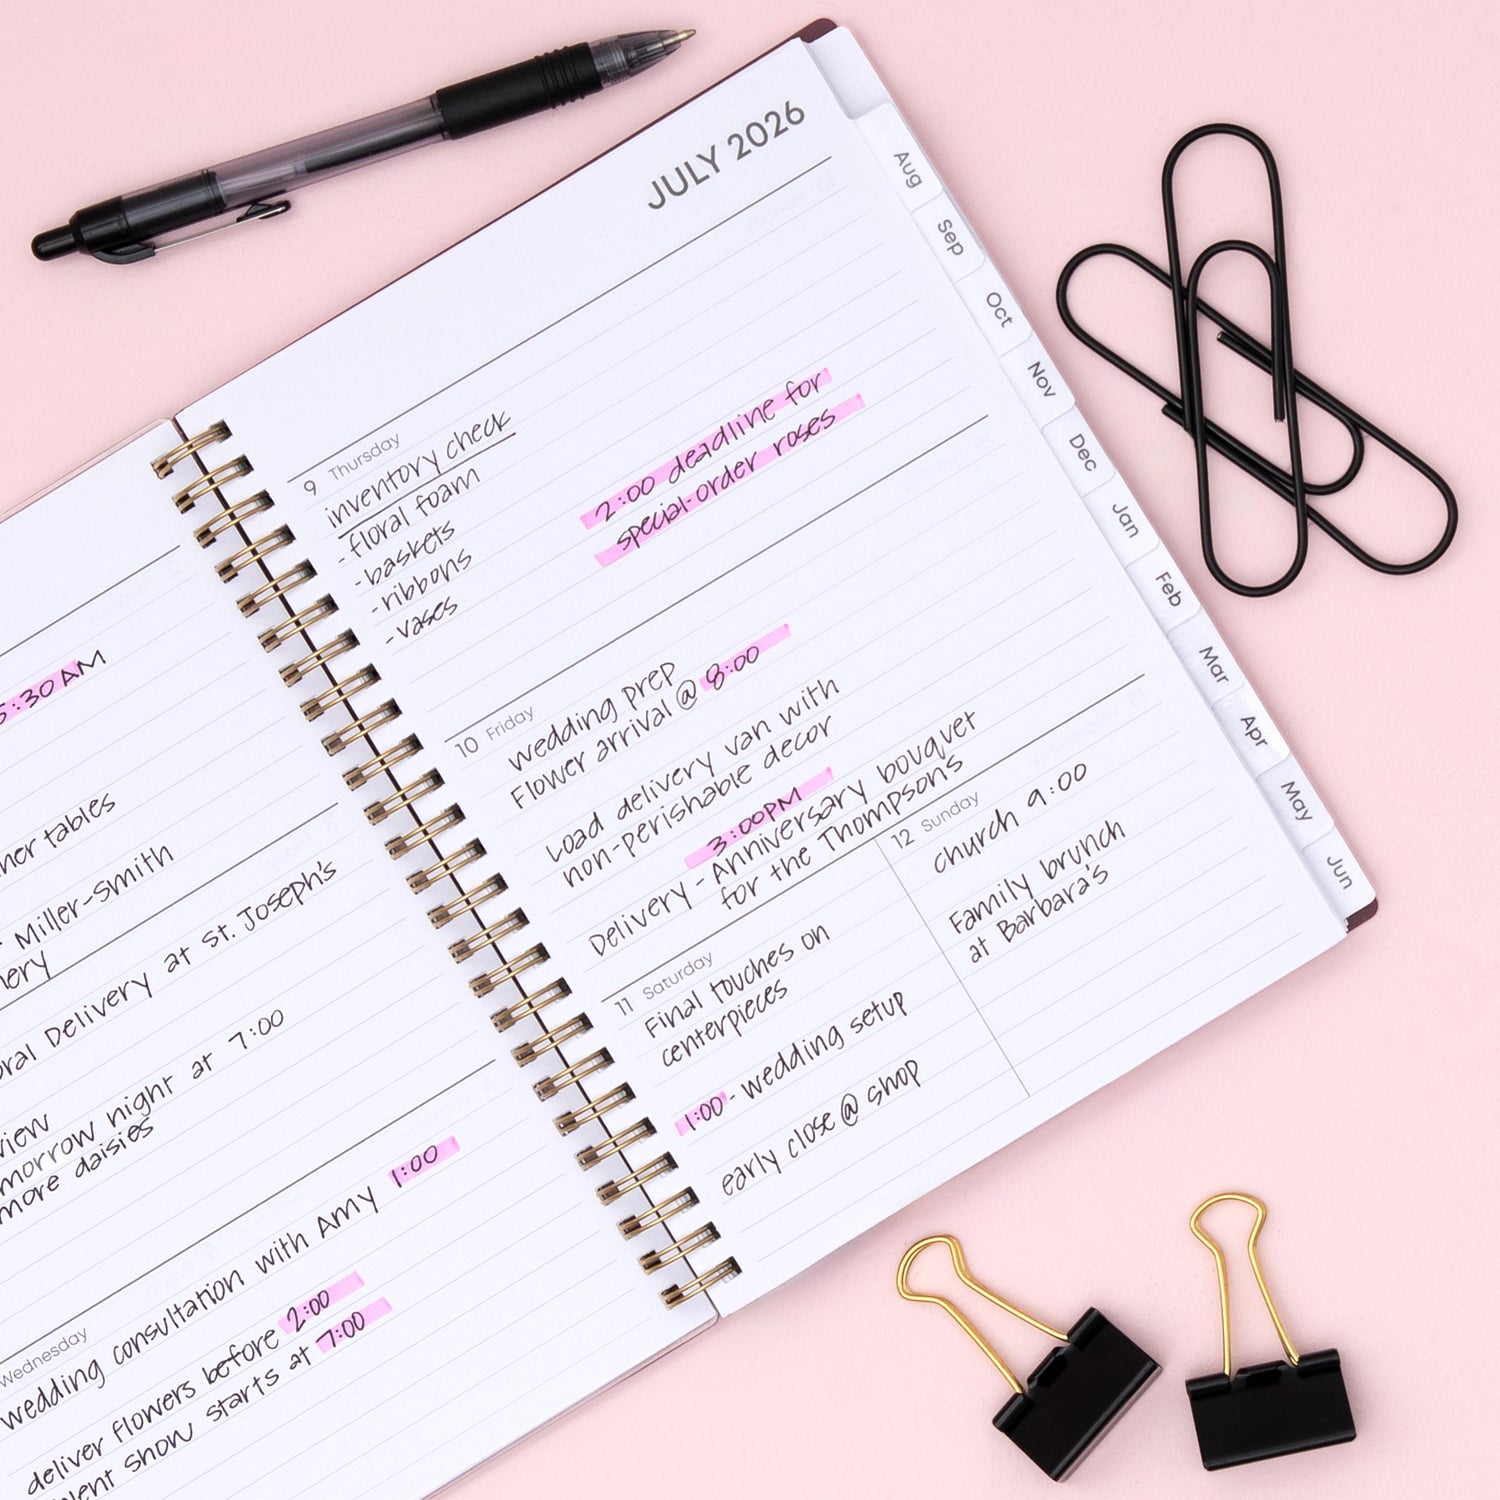 5:30 AM
her tables
Miller-Smith
St. Joseph's
Delivery at
night at 7:00
more daisies
Wednesday
wedding consultation with Amy 1:00
deliver flowers before 2:00
show starts at 7:00
JULY 2026
9 Thursday
inventory check
-floral foam
-baskets
-ribbons
-vases
2:00 deadline for
special-order roses
10 Friday
wedding prep
Flower arrival @ 8:00
Load delivery van with
non-perishable decor
3:00PM
Delivery - Anniversary bouquet
for the Thompsons
11 Saturday
Final touches on
centerpieces
1:00 - wedding setup
early close @ shop
12 Sunday
church 9:00
Family brunch
at Barbara's
Aug
Sep
Oct
Nov
Dec
Jan
Feb
Mar
Apr
May
Jun